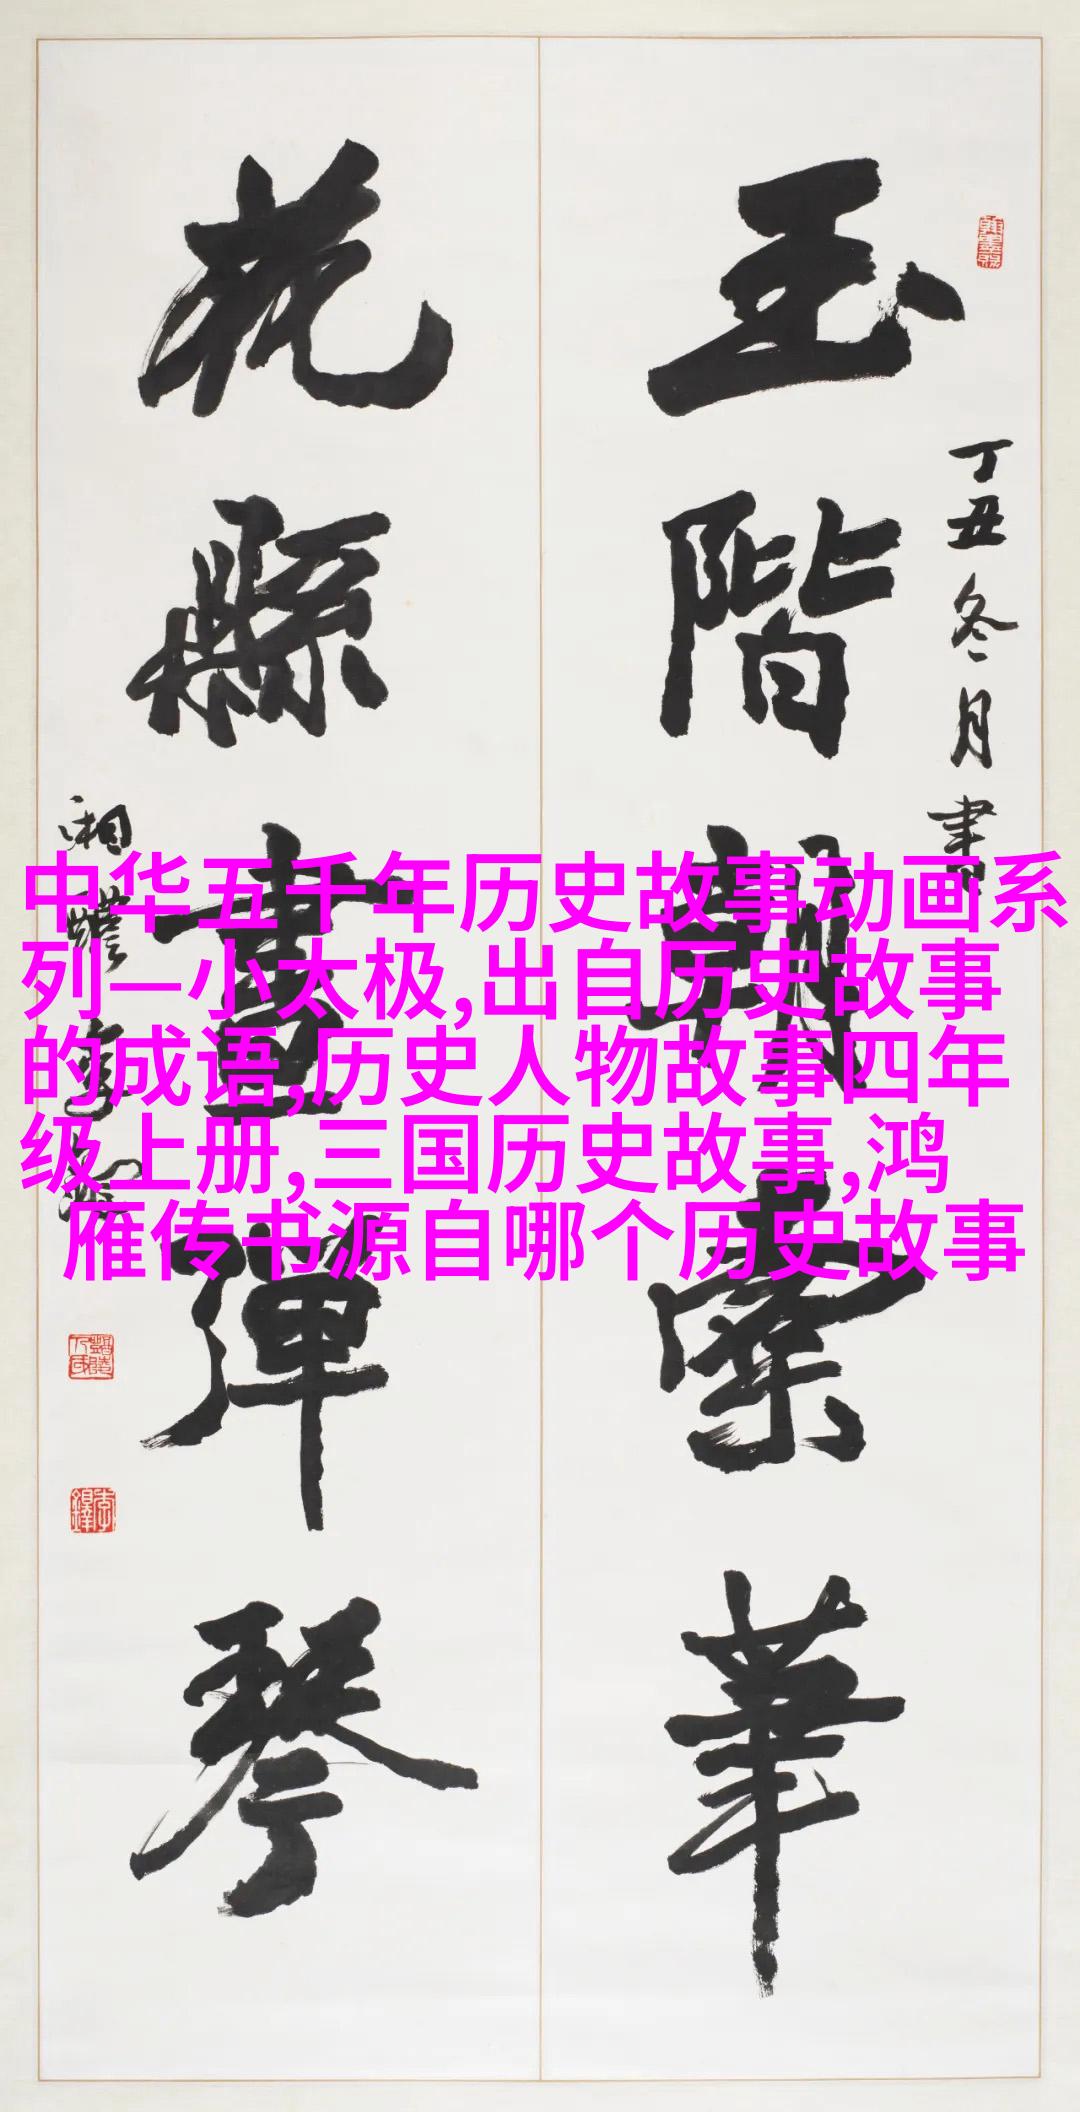 玉階朝索筆
花縣晝彈琴
丁丑冬月書
湘
中华五千年历史故事动画系
列—小太极,出自历史故事
的成语,历史人物故事四年
级上册,三国历史故事,鸿
雁传书源自哪个历史故事